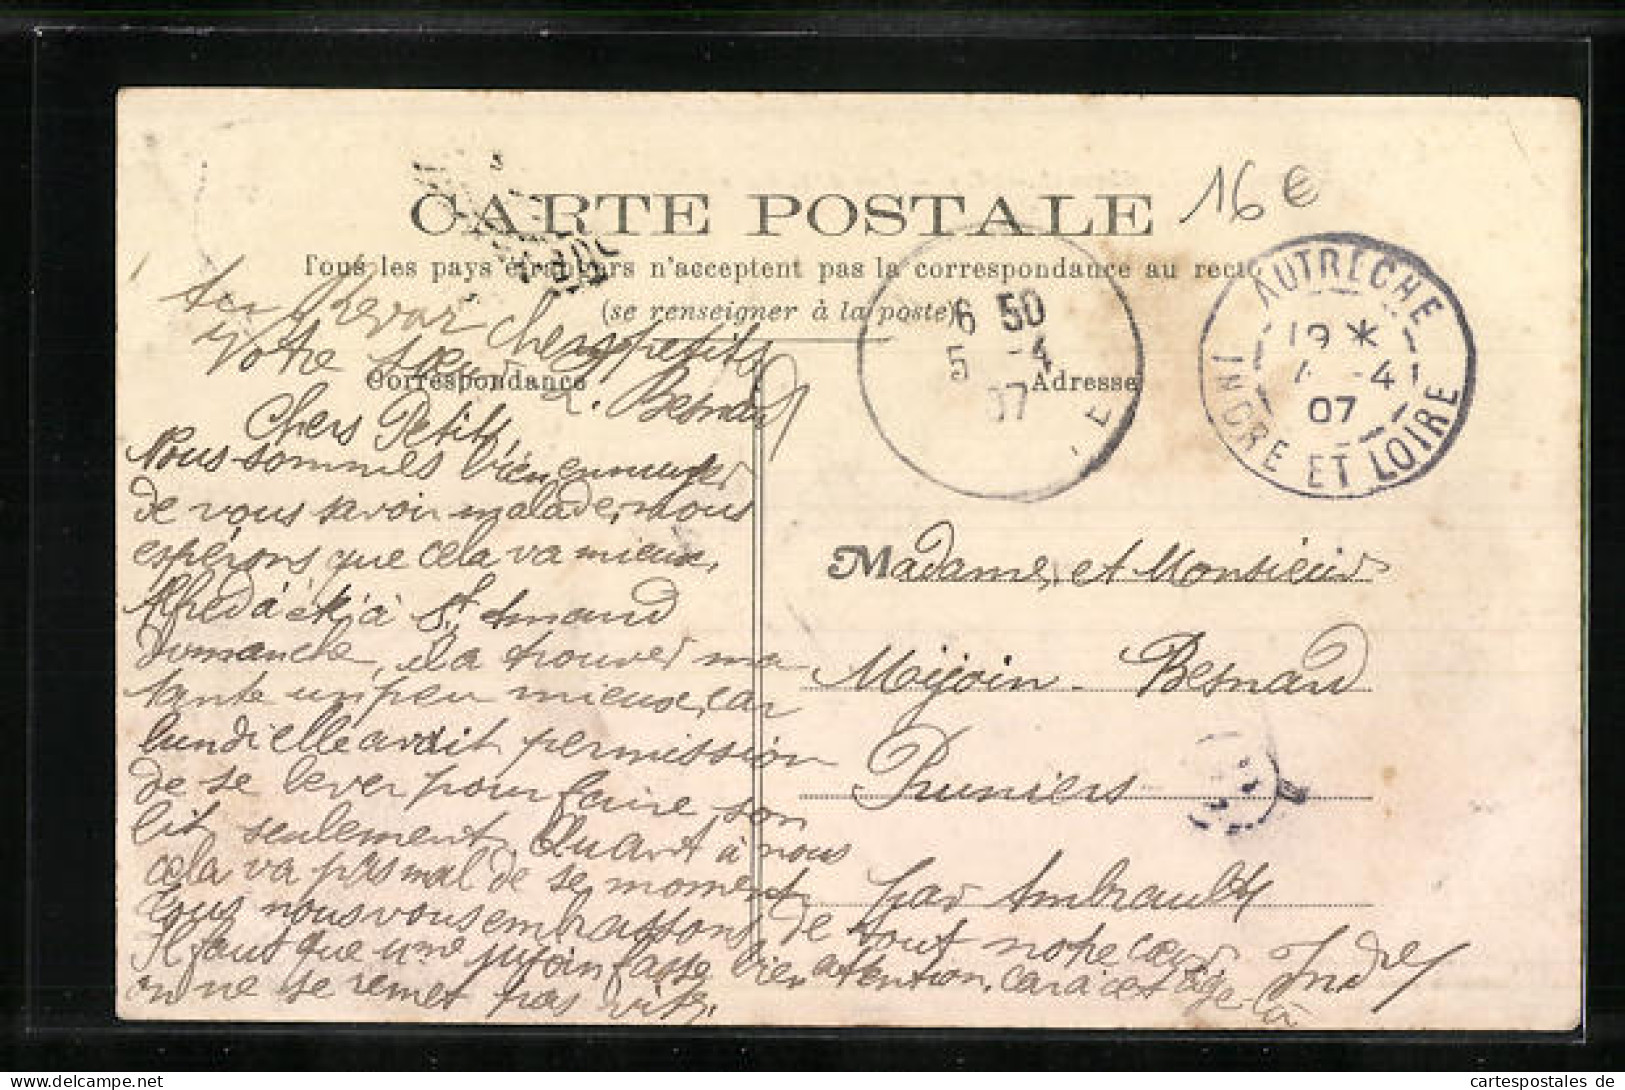 CARTE POSTALE
16 €
Tous les pays étrangers n'acceptent pas la correspondance au recto
(se renseigner à la poste)
Correspondance
Adresse
6 50
5 -4
07
AUTRECHE
19 *
-4
07
INDRE ET LOIRE
Au Revoir Chers petits
Votre L. Besnard
Chers Petits
Nous sommes bien ennuyer
de vous savoir malade, nous
espérons que cela va mieux,
Alfred a été à St Amand
dimanche, il a trouver ma
tante un peu mieux, car
lundi elle avait permission
de se lever pour faire son
lit seulement. Quant à nous
cela va pas mal de se moment
tous nous vous embrassons de tout notre cœur
Il faut que une mijoin fasse bien attention, car à cet âge-là
on ne se remet pas vite.
Madame, et Monsieur
Mijoin - Besnard
Pruniers
par Ambrault
Indre
cartespostales de